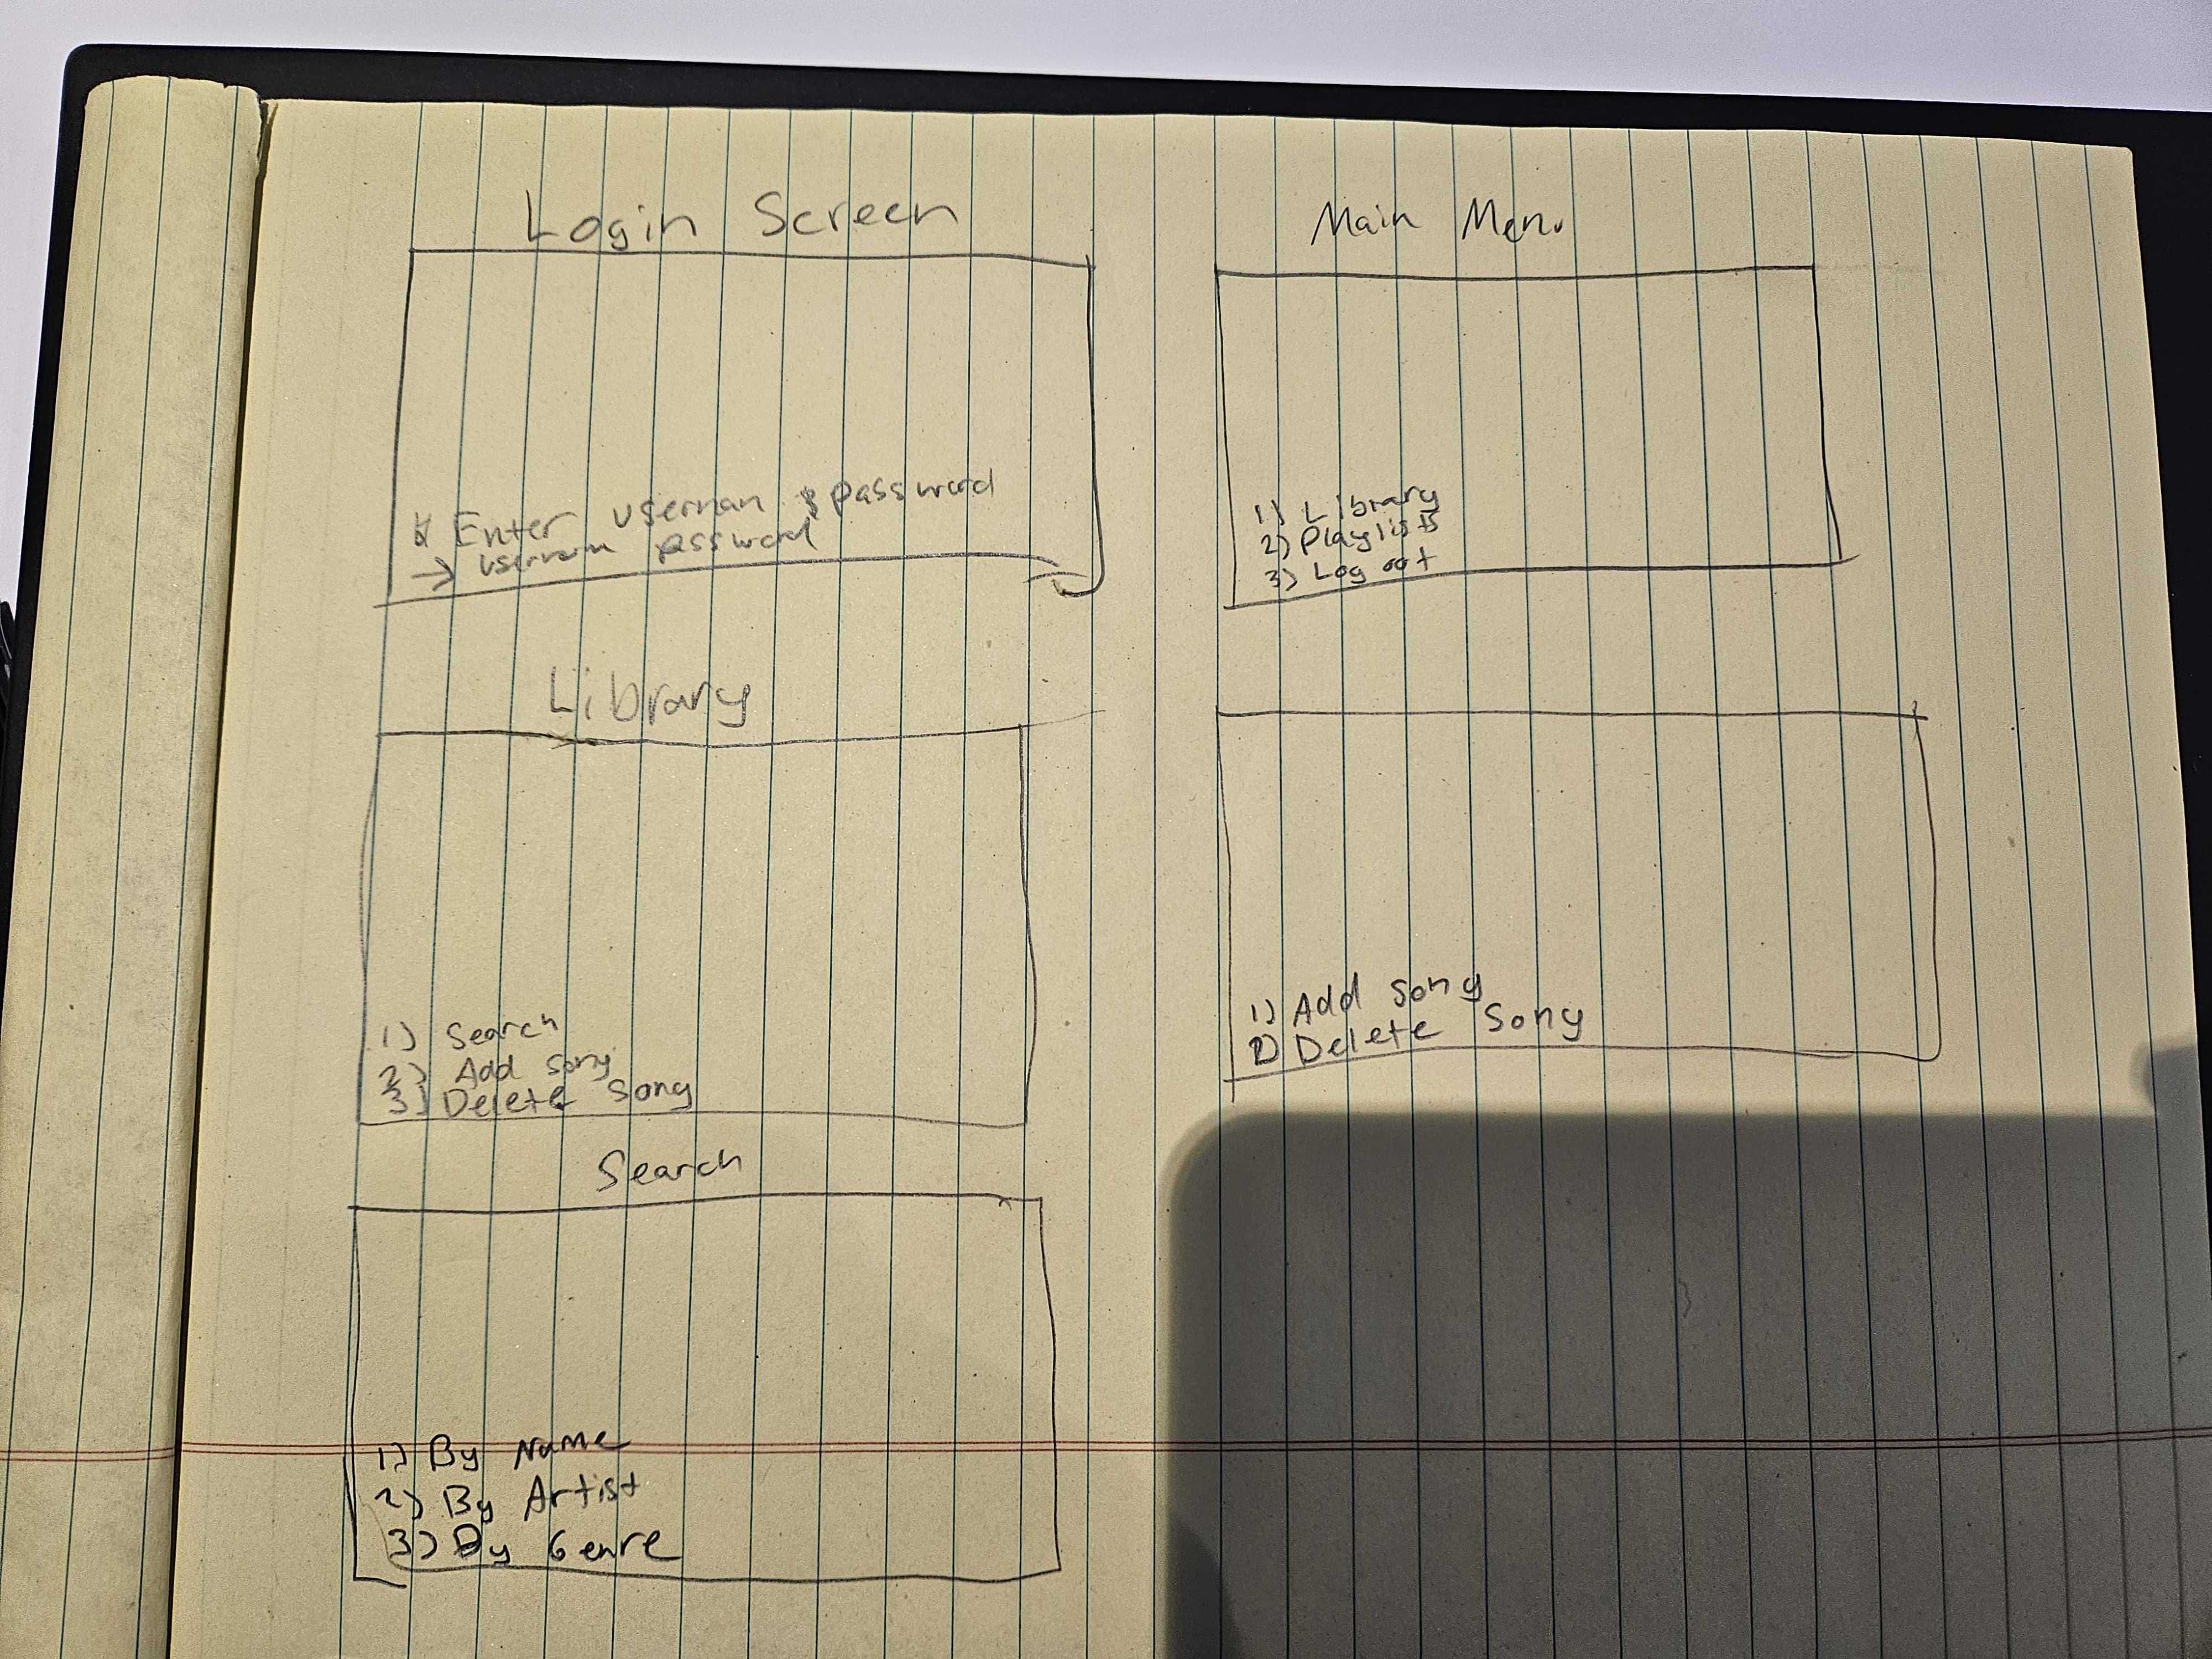 Login Screen
Enter usernam & password
→ username password
Main Menu
1) Library
2) Playlists
3) Log out
Library
1) Search
2) Add song
3) Delete song
1) Add song
2) Delete song
Search
1) By Name
2) By Artist
3) By Genre